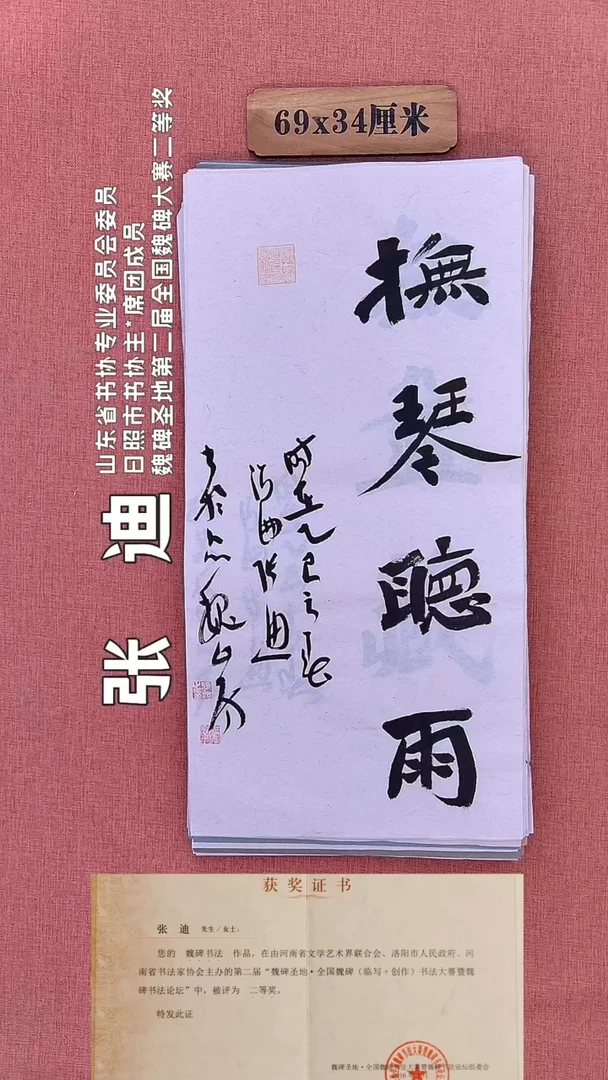 69x34厘米
撫琴聽雨
时在乙巳之夏
海曲张迪
书于京魏文房
张 迪
山东省书协专业委员会委员
日照市书协主*席团成员
魏碑圣地第二届全国魏碑大赛二等奖
获奖证书
张 迪 先生/女士：
您的 魏碑书法 作品，在由河南省文学艺术界联合会、洛阳市人民政府、河
南省书法家协会主办的第二届“魏碑圣地·全国魏碑（临写+创作）书法大赛暨魏
碑书法论坛”中，被评为 二等奖。
特发此证